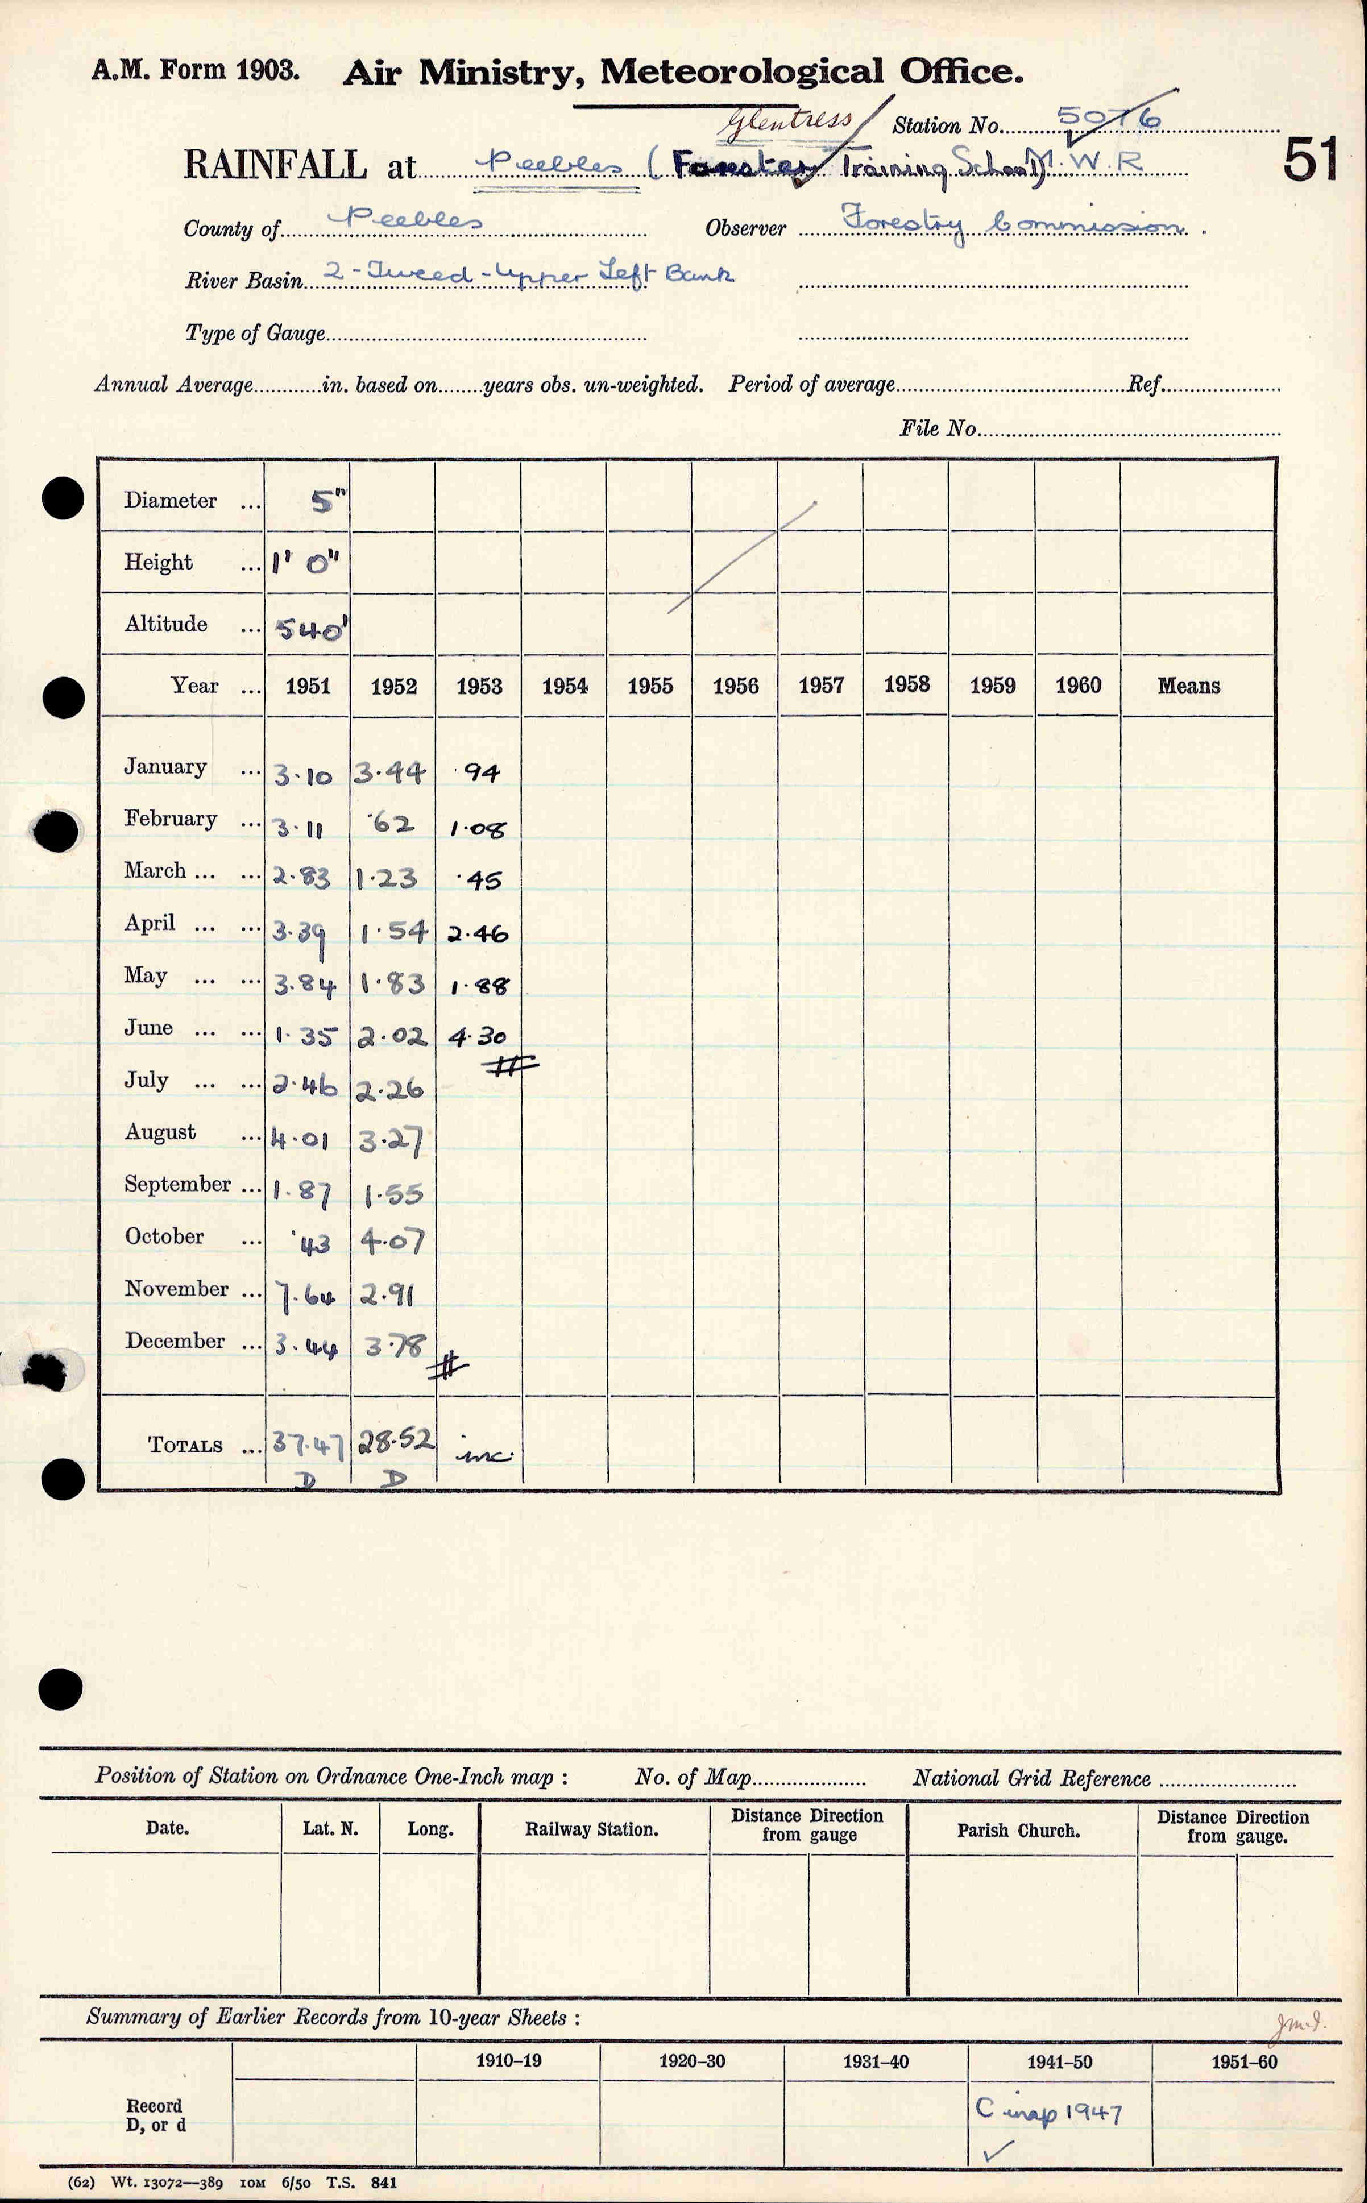 A.M. Form 1903. Air Ministry, Meteorological Office.
Glentress Station No. 5076
RAINFALL at Peebles ( Forester Training School) M.W.R 51
County of Peebles Observer Forestry Commission.
River Basin 2-Tweed-Upper Left Bank
Type of Gauge
Annual Average in. based on years obs. un-weighted. Period of average Ref.
File No.
Diameter ... 5"
Height ... 1' 0"
Altitude ... 540'
Year ... 1951 1952 1953 1954 1955 1956 1957 1958 1959 1960 Means
January ... 3.10 3.44 .94
February ... 3.11 .62 1.08
March ... ... 2.83 1.23 .45
April ... ... 3.39 1.54 2.46
May ... ... 3.84 1.83 1.88
June ... ... 1.35 2.02 4.30
July ... ... 2.46 2.26
August ... 4.01 3.27
September ... 1.87 1.55
October ... .43 4.07
November ... 7.64 2.91
December ... 3.44 3.78
TOTALS ... 37.47 28.52 inc.
D D
Position of Station on Ordnance One-Inch map : No. of Map National Grid Reference
Date. Lat. N. Long. Railway Station. Distance Direction from gauge Parish Church. Distance Direction from gauge.
Summary of Earlier Records from 10-year Sheets :
1910–19 1920–30 1931–40 1941–50 1951–60
Record
D, or d
C inap 1947
(62) Wt. 13072—389 10M 6/50 T.S. 841